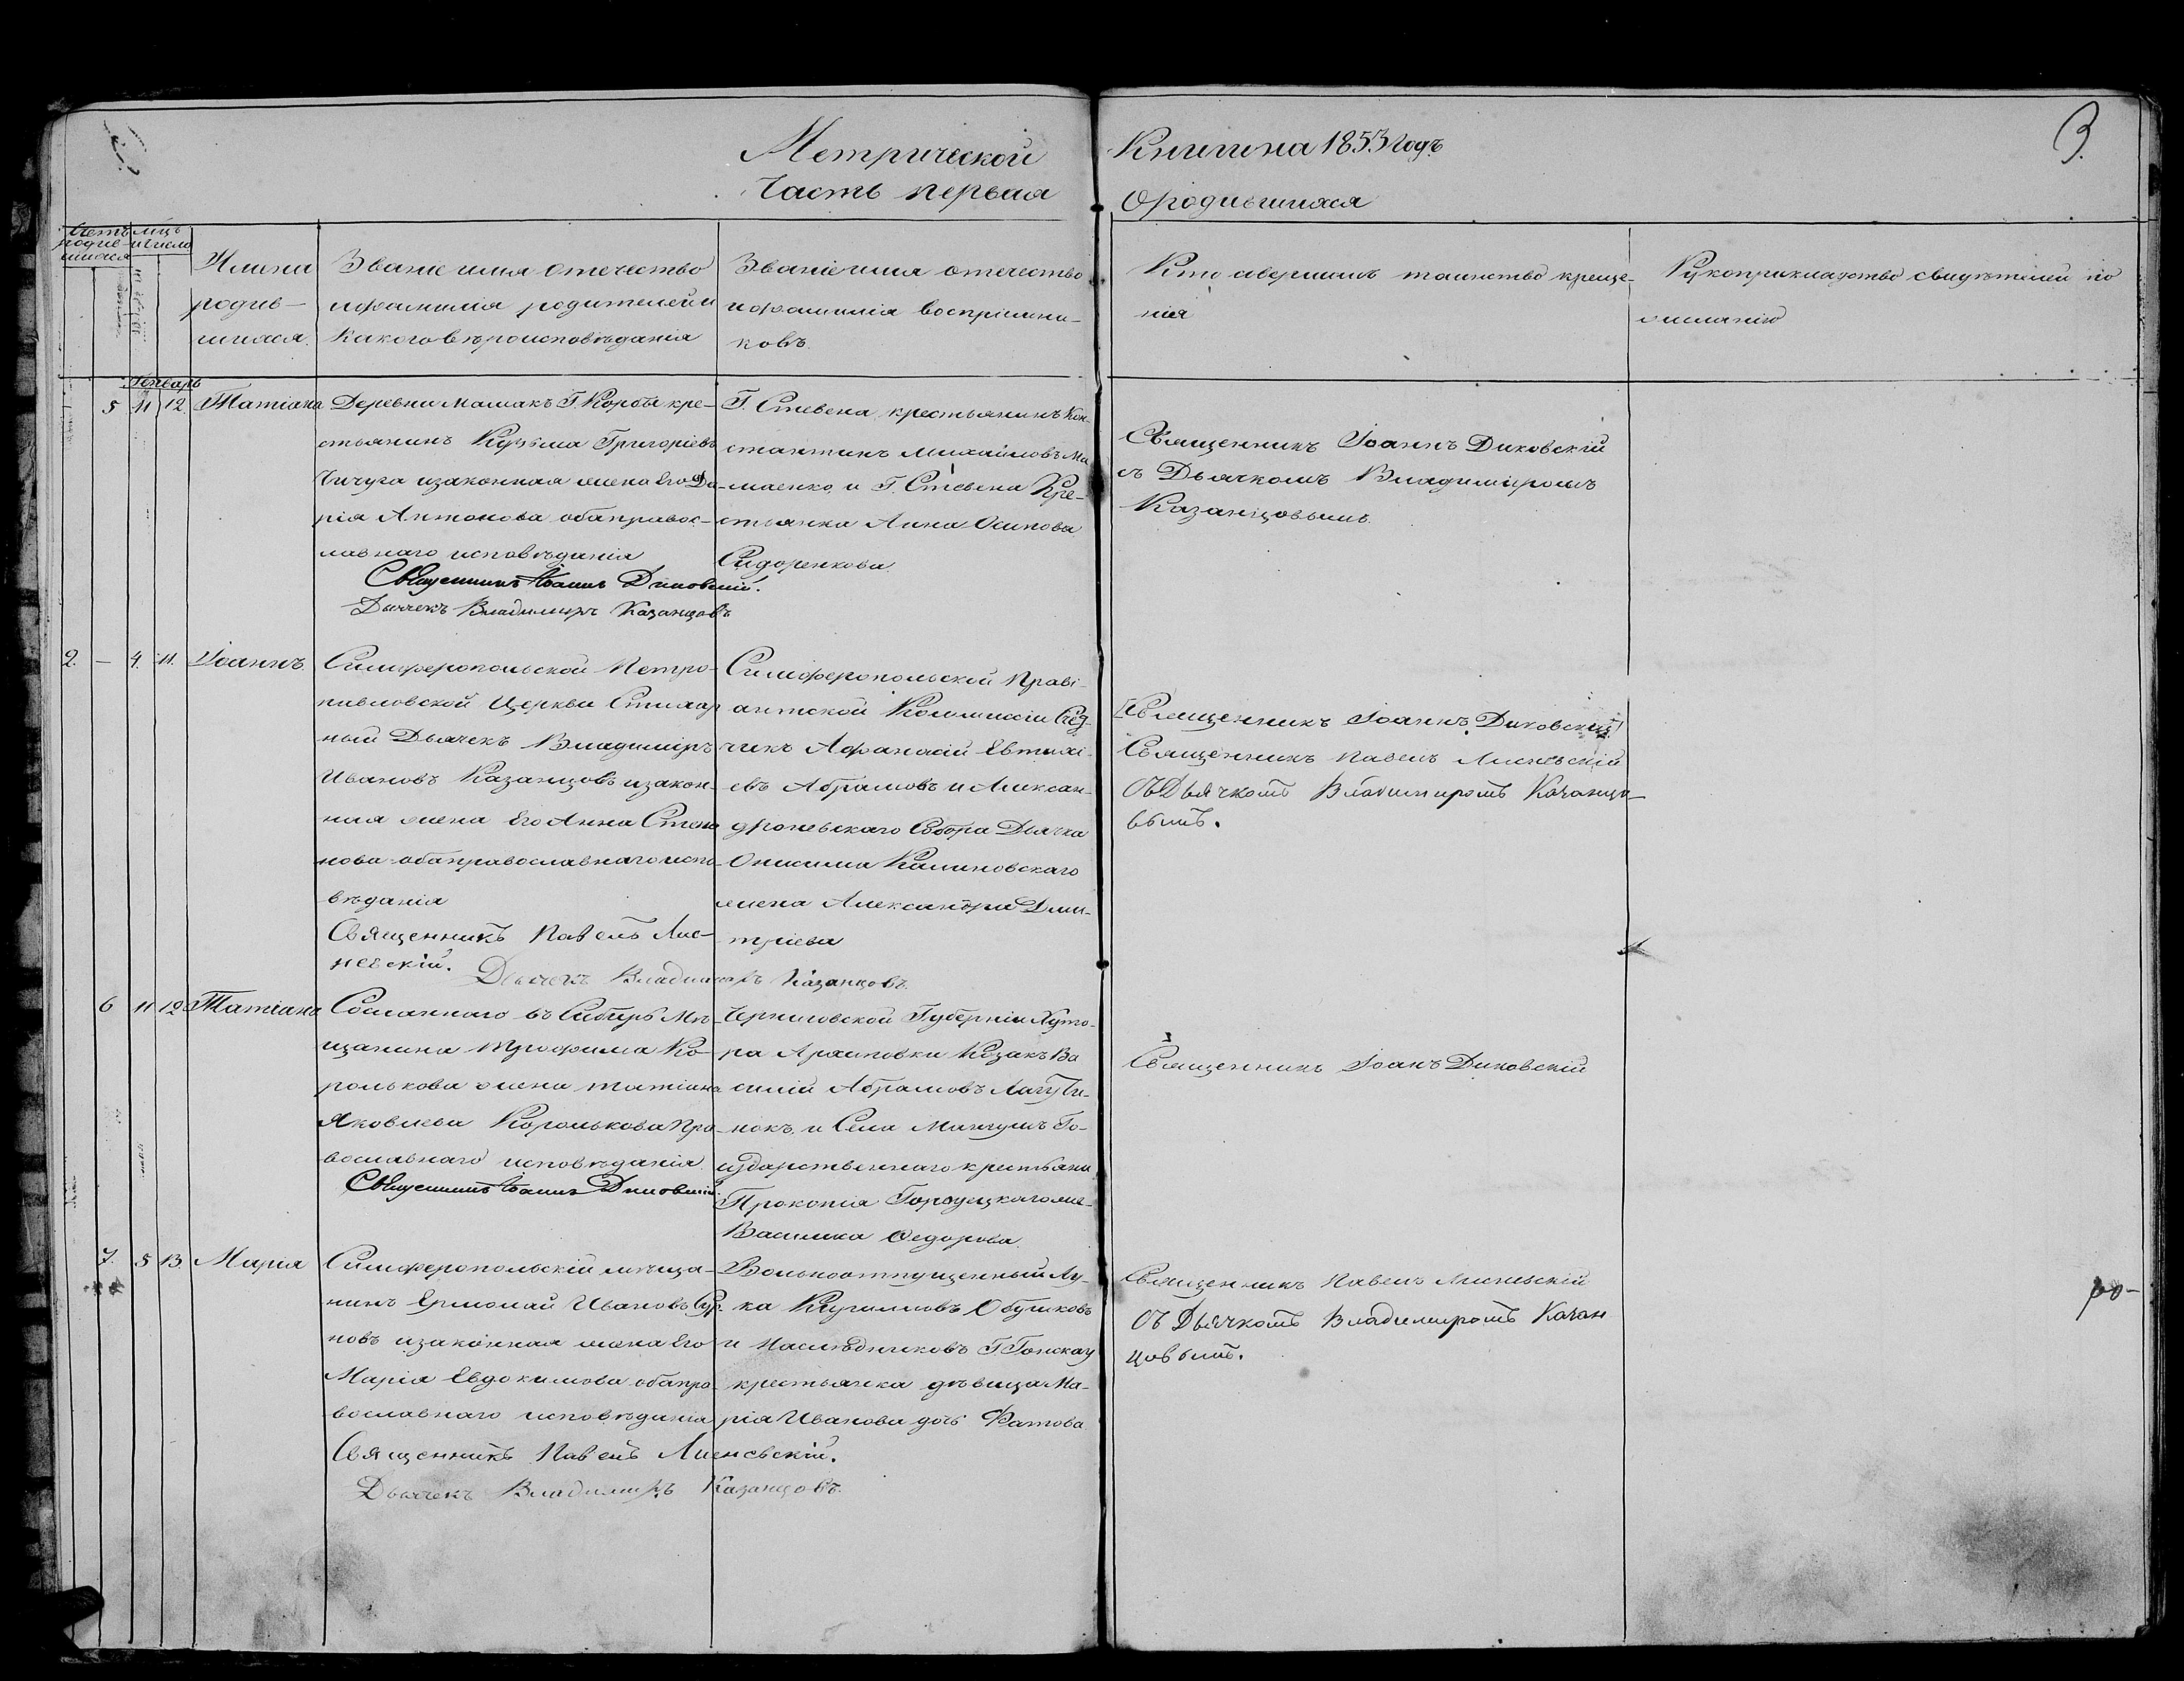 Метрической Книги на 1853 годъ
3.
Часть первая О родившихся
Счетъ родив-шихся
мцъ и число
Имена
родив-
шихся.
Званіе имя отечество
и фамилія родителей и
какого вѣроисповѣданія
Званіе имя отечество
и фамилія воспріемни-
ковъ.
Кто совершилъ таинство креще-
нія
Рукоприкладство свидѣтелей по
желанію
Генварь
5 11 12 Татіана
Деревни Мамакъ Г. Корбе кре-
стьянинъ Кузьма Григоріевъ
Чичуга и законная жена его Да-
рія Антонова оба правос-
лавнаго исповѣданія
Священникъ Іоаннъ Диковскій.
Дьячекъ Владимиръ Казанцовъ
Г. Стевена крестьянинъ Кон-
стантинъ Михайловъ Ма
маенко, и Г. Стевена Кре-
стьянка Анна Осипова
Сидоренкова
Священникъ Іоаннъ Диковскій
съ Дьячкомъ Владиміромъ
Казанцовымъ.
2. — 4. 11. Іоаннъ.
Симферопольской Петро-
павловской Церкви Стихар
ный Дьячекъ Владиміръ
Ивановъ Казанцовъ и закон-
ная жена Его Анна Степа
нова оба православнаго испо-
вѣданія
Священникъ Павелъ Лис-
невскій.
Дьячекъ Владимиръ Казанцовъ.
Симферопольской Праві-
антской Коммиссіи Счед-
чикъ Афанасій Евтихі-
евъ Абрамовъ и Алексан-
дроневскаго Собора Дьячка
Онисима Калиновскаго
жена Александра Дми-
тріева
Священникъ Іоаннъ Диковскій
Священникъ Павелъ Лисневскій
Съ Дьячкомъ Владимиромъ Казанцо-
вымъ.
6 11 12 Татіана
Сосланнаго въ Сибирь Мѣ-
щанина Трофима Ко-
ролькова жена Татіана
Яковлева Королькова Пра-
вославнаго исповѣданія.
Священникъ Іоаннъ Диковскій
Черниговской Губерніи Хуто-
ра Архиповки Козакъ Ва
силій Абрамовъ
нокъ, и Села Мангушъ Го-
сударственнаго крестьяни
Прокопія Городецкаго же-
Василиса Федорова.
Священникъ Іоанъ Диковскій
7. 5 13. Марія
Симферопольскій мѣща-
нинъ Ермолай Ивановъ Сур
новъ и законная жена его
Марія Евдокимова оба пра-
вославнаго исповѣданія
Священникъ Павелъ Лисневскій.
Дьячекъ Владимиръ Казанцовъ.
Вольноотпущенный Лу-
ка Обушковъ
и наслѣдниковъ Г.
крестьянка дѣвица Ма-
рія Иванова дочь Фатова.
Священникъ Павелъ Лисневскій
Съ Дьячкомъ Владимиромъ Казан
цовымъ.